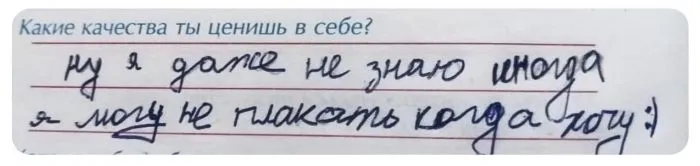 Какие качества ты ценишь в себе?
ну я даже не знаю иногда
я могу не плакать когда хочу:)